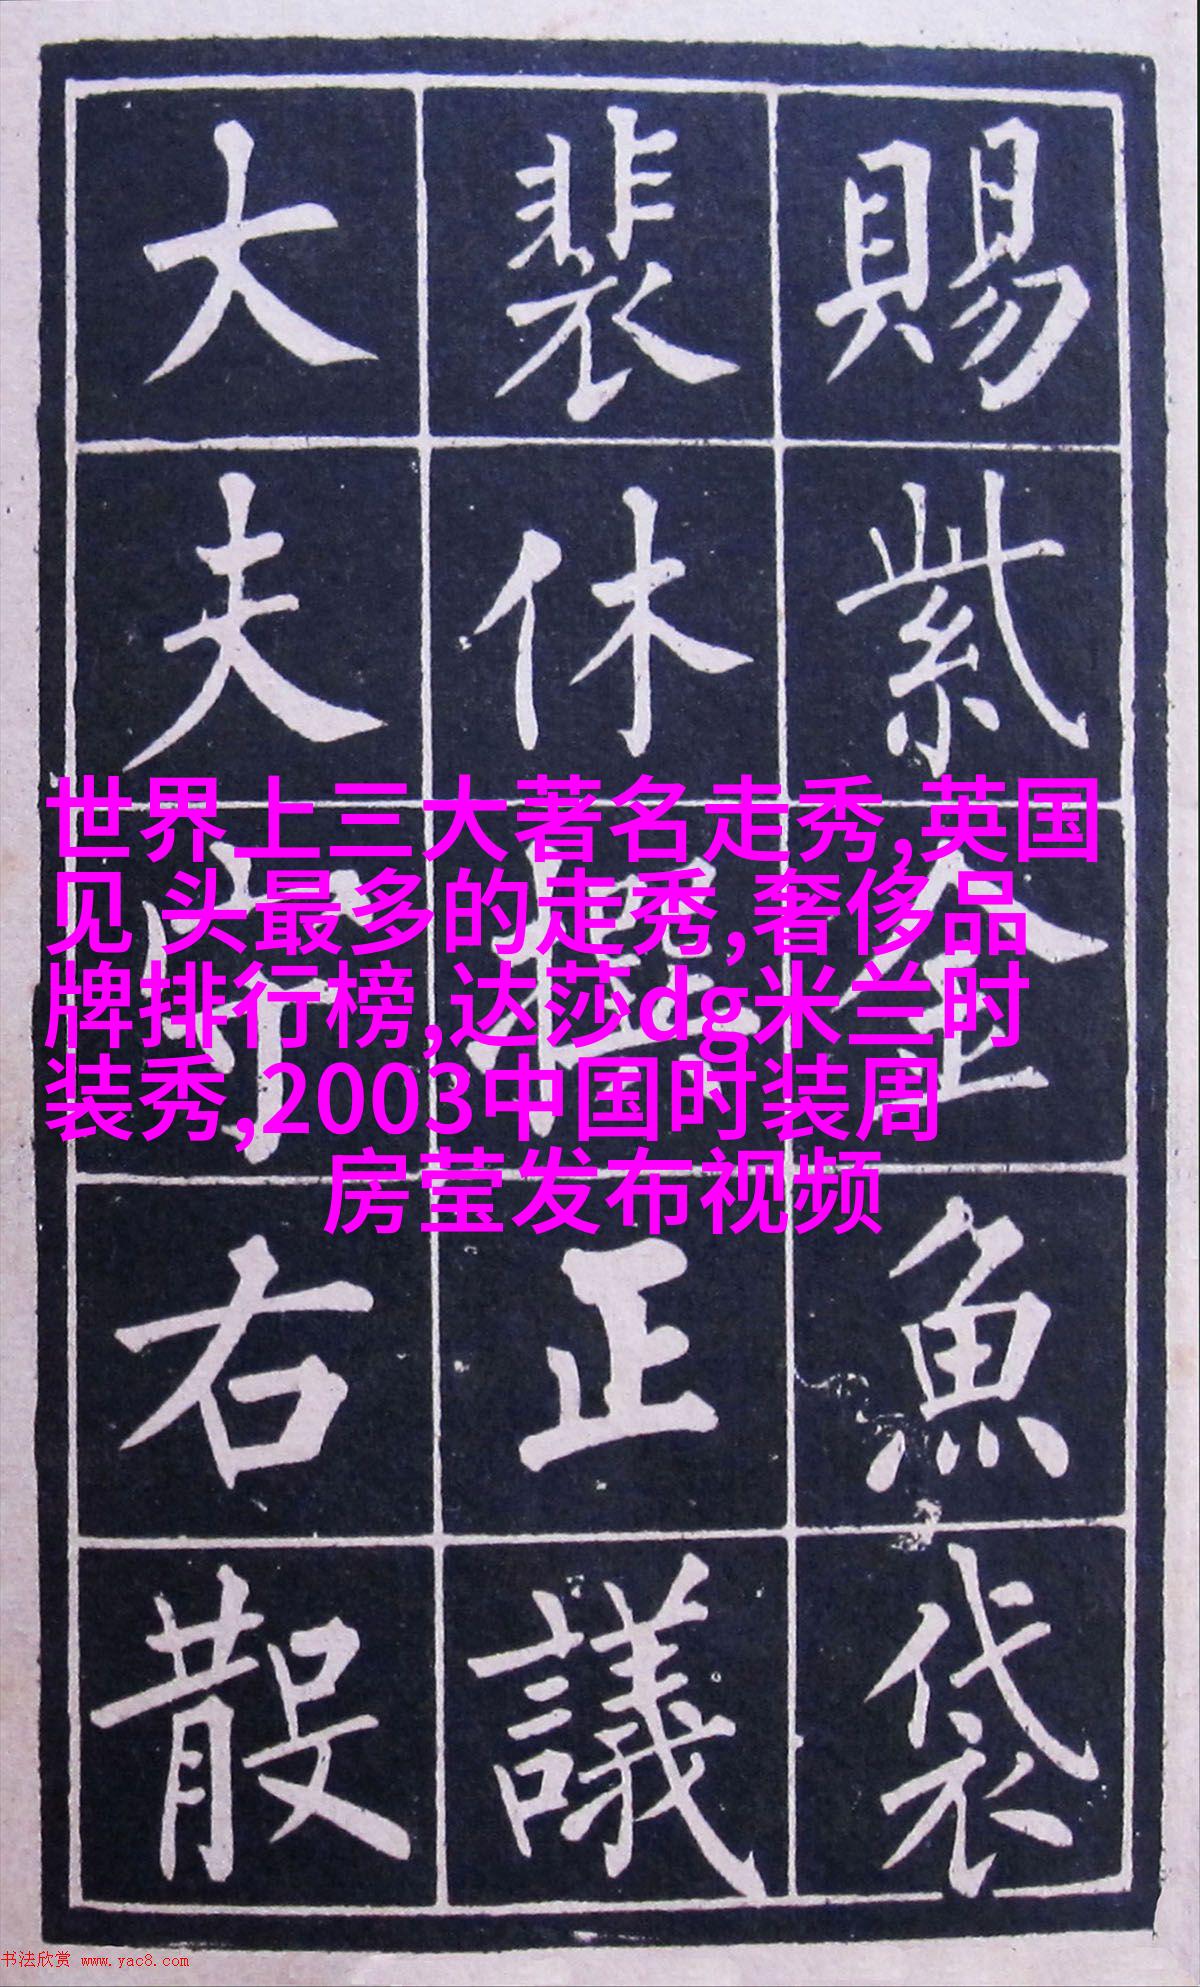 賜紫金魚袋
裴休撰正議
大夫守右散
世界上三大著名走秀,英国
见 头最多的走秀,奢侈品
牌排行榜,达莎dg米兰时
装秀,2003中国时装周
房莹发布视频
书法欣赏 www.yac8.com